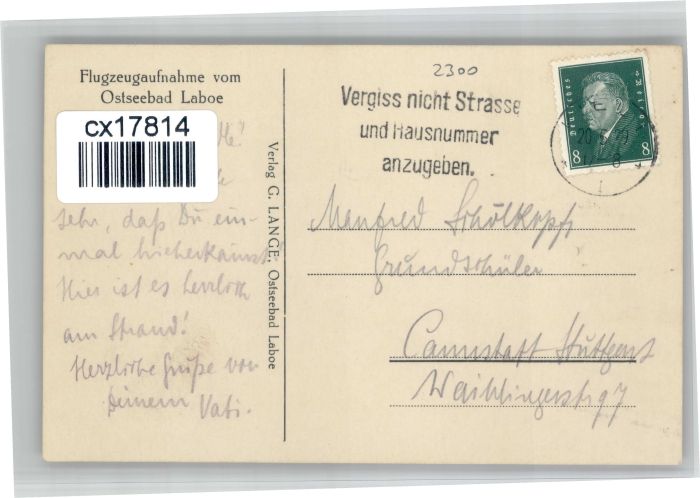 Flugzeugaufnahme vom
Ostseebad Laboe
cx17814
sehr, daß Du ein-
mal hieherkamst!
Hier ist es herrlich
am Strand!
Herzliche Grüße von
Deinem Vati.
Verlag G. LANGE, Ostseebad Laboe
2300
Vergiss nicht Strasse
und Hausnummer
anzugeben.
Deutsches Reich
8 8
Manfred Schölkopf
Grundschüler
Cannstatt Stuttgart
Waiblingerstr 97